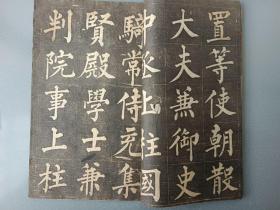 置等使朝散
大夫兼御史
中丞上柱國
騎常侍充集
賢殿學士兼
判院事上柱